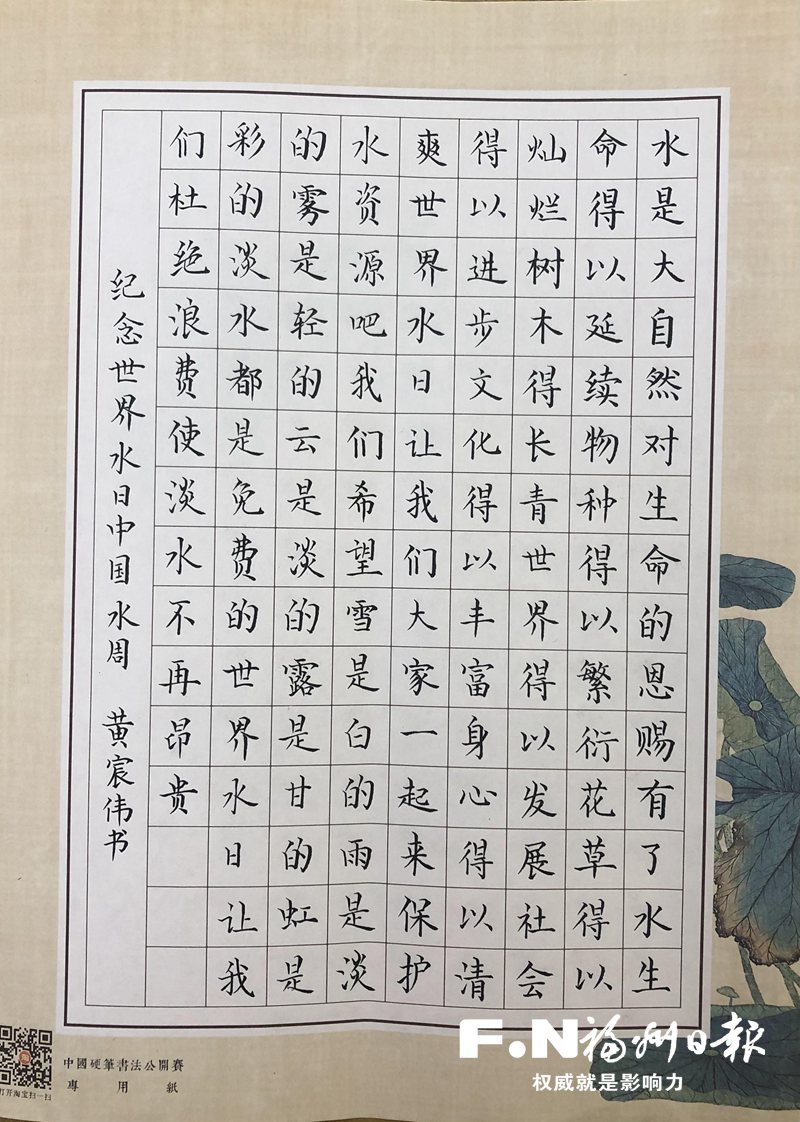 水是大自然对生命的恩赐有了水生
命得以延续物种得以繁衍花草得以
灿烂树木得长青世界得以发展社会
得以进步文化得以丰富身心得以清
爽世界水日让我们大家一起来保护
水资源吧我们希望雪是白的雨是淡
的雾是轻的云是淡的露是甘的虹是
彩的淡水都是免费的世界水日让我
们杜绝浪费使淡水不再昂贵
纪念世界水日中国水周 黄宸伟书
中國硬筆書法公開賽
專用紙
打开淘宝扫一扫
F.N福州日報
权威就是影响力